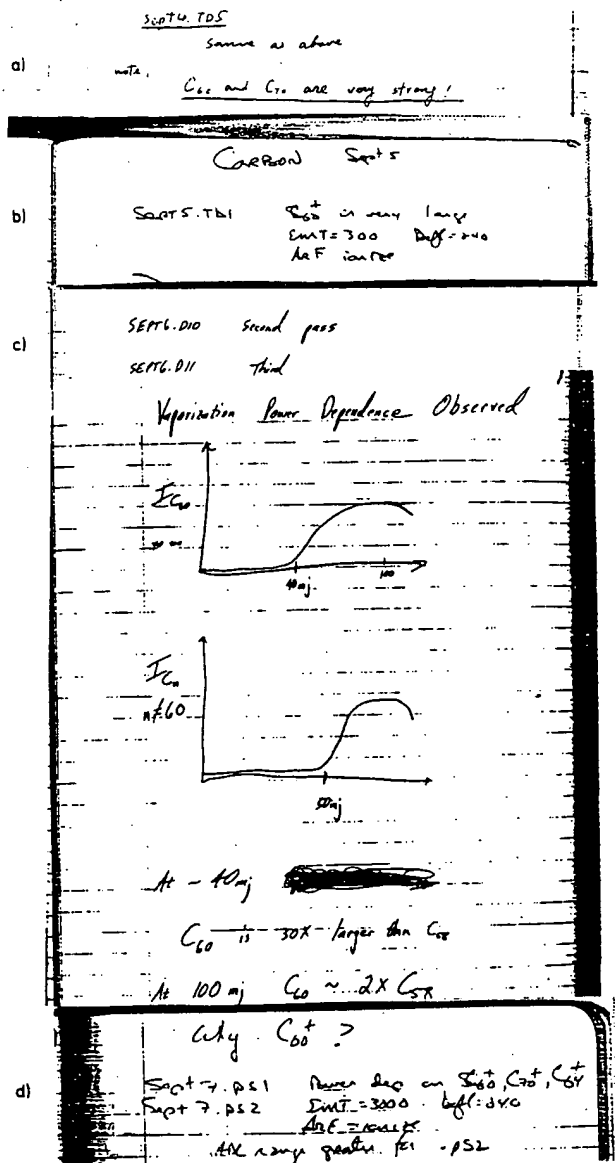 a)
Sept 4. TD5
Same as above
note,
C60 and C70 are very strong!
CARBON Sept 5
b)
SEPT 5. TD1 C60+ is very large
EMT = 300 Defl = 240
ArF ionize
c)
SEPT6.D10 Second pass
SEPT6.D11 Third
Vaporization Power Dependence Observed
I C60
40 mj 100
I Cn
n≠60
50mj
At ~ 40 mj
C60 is 30X larger than C58
At 100 mj C60 ~ 2X C58
Why C60+ ?
d)
Sept 7. PS1 Power dep on C60+, C70+, C64+
Sept 7. PS2 EMT = 3000 Defl = 240
ArF = ionize
range greater for .PS2